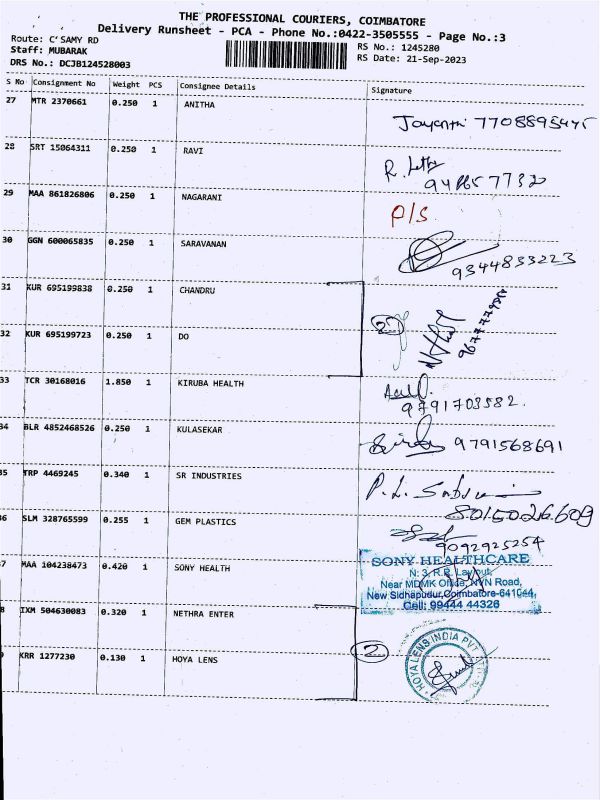 THE PROFESSIONAL COURIERS, COIMBATORE
Delivery Runsheet - PCA - Phone No.:0422-3505555 - Page No.:3
Route: C'SAMY RD
RS No.: 1245280
Staff: MUBARAK
RS Date: 21-Sep-2023
DRS No.: DCJB124528003
S No Consignment No Weight PCS Consignee Details Signature
27 MTR 2370661 0.250 1 ANITHA
Jayanthi 7708895475
28 SRT 15064311 0.250 1 RAVI
R.
29 MAA 861826806 0.250 1 NAGARANI
P/S
30 GGN 600065835 0.250 1 SARAVANAN
9344833223
31 KUR 695199838 0.250 1 CHANDRU
2
32 KUR 695199723 0.250 1 DO
33 TCR 30168016 1.850 1 KIRUBA HEALTH
9791703582.
34 BLR 4852468526 0.250 1 KULASEKAR
9791568691
35 TRP 4469245 0.340 1 SR INDUSTRIES
8015026609
36 SLM 328765599 0.255 1 GEM PLASTICS
9092925254
7 MAA 104238473 0.420 1 SONY HEALTH
SONY HEALTHCARE
N: 3, R.R. Layout,
Near MDMK Office, NVN Road,
New Sidhapudur, Coimbatore-641044,
Cell: 99444 44326
8 IXM 504630083 0.320 1 NETHRA ENTER
2
KRR 1277230 0.130 1 HOYA LENS
HOYA LENS INDIA PVT